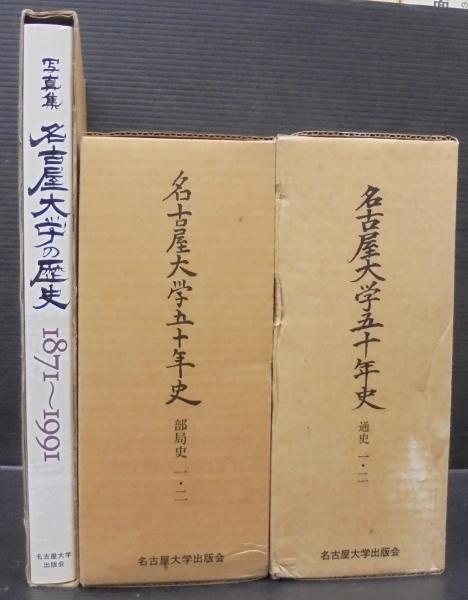 写真集
名古屋大学の歴史
1871〜1991
名古屋大学
出版会
名古屋大学五十年史
部局史 一・二
名古屋大学出版会
名古屋大学五十年史
通史 一・二
名古屋大学出版会